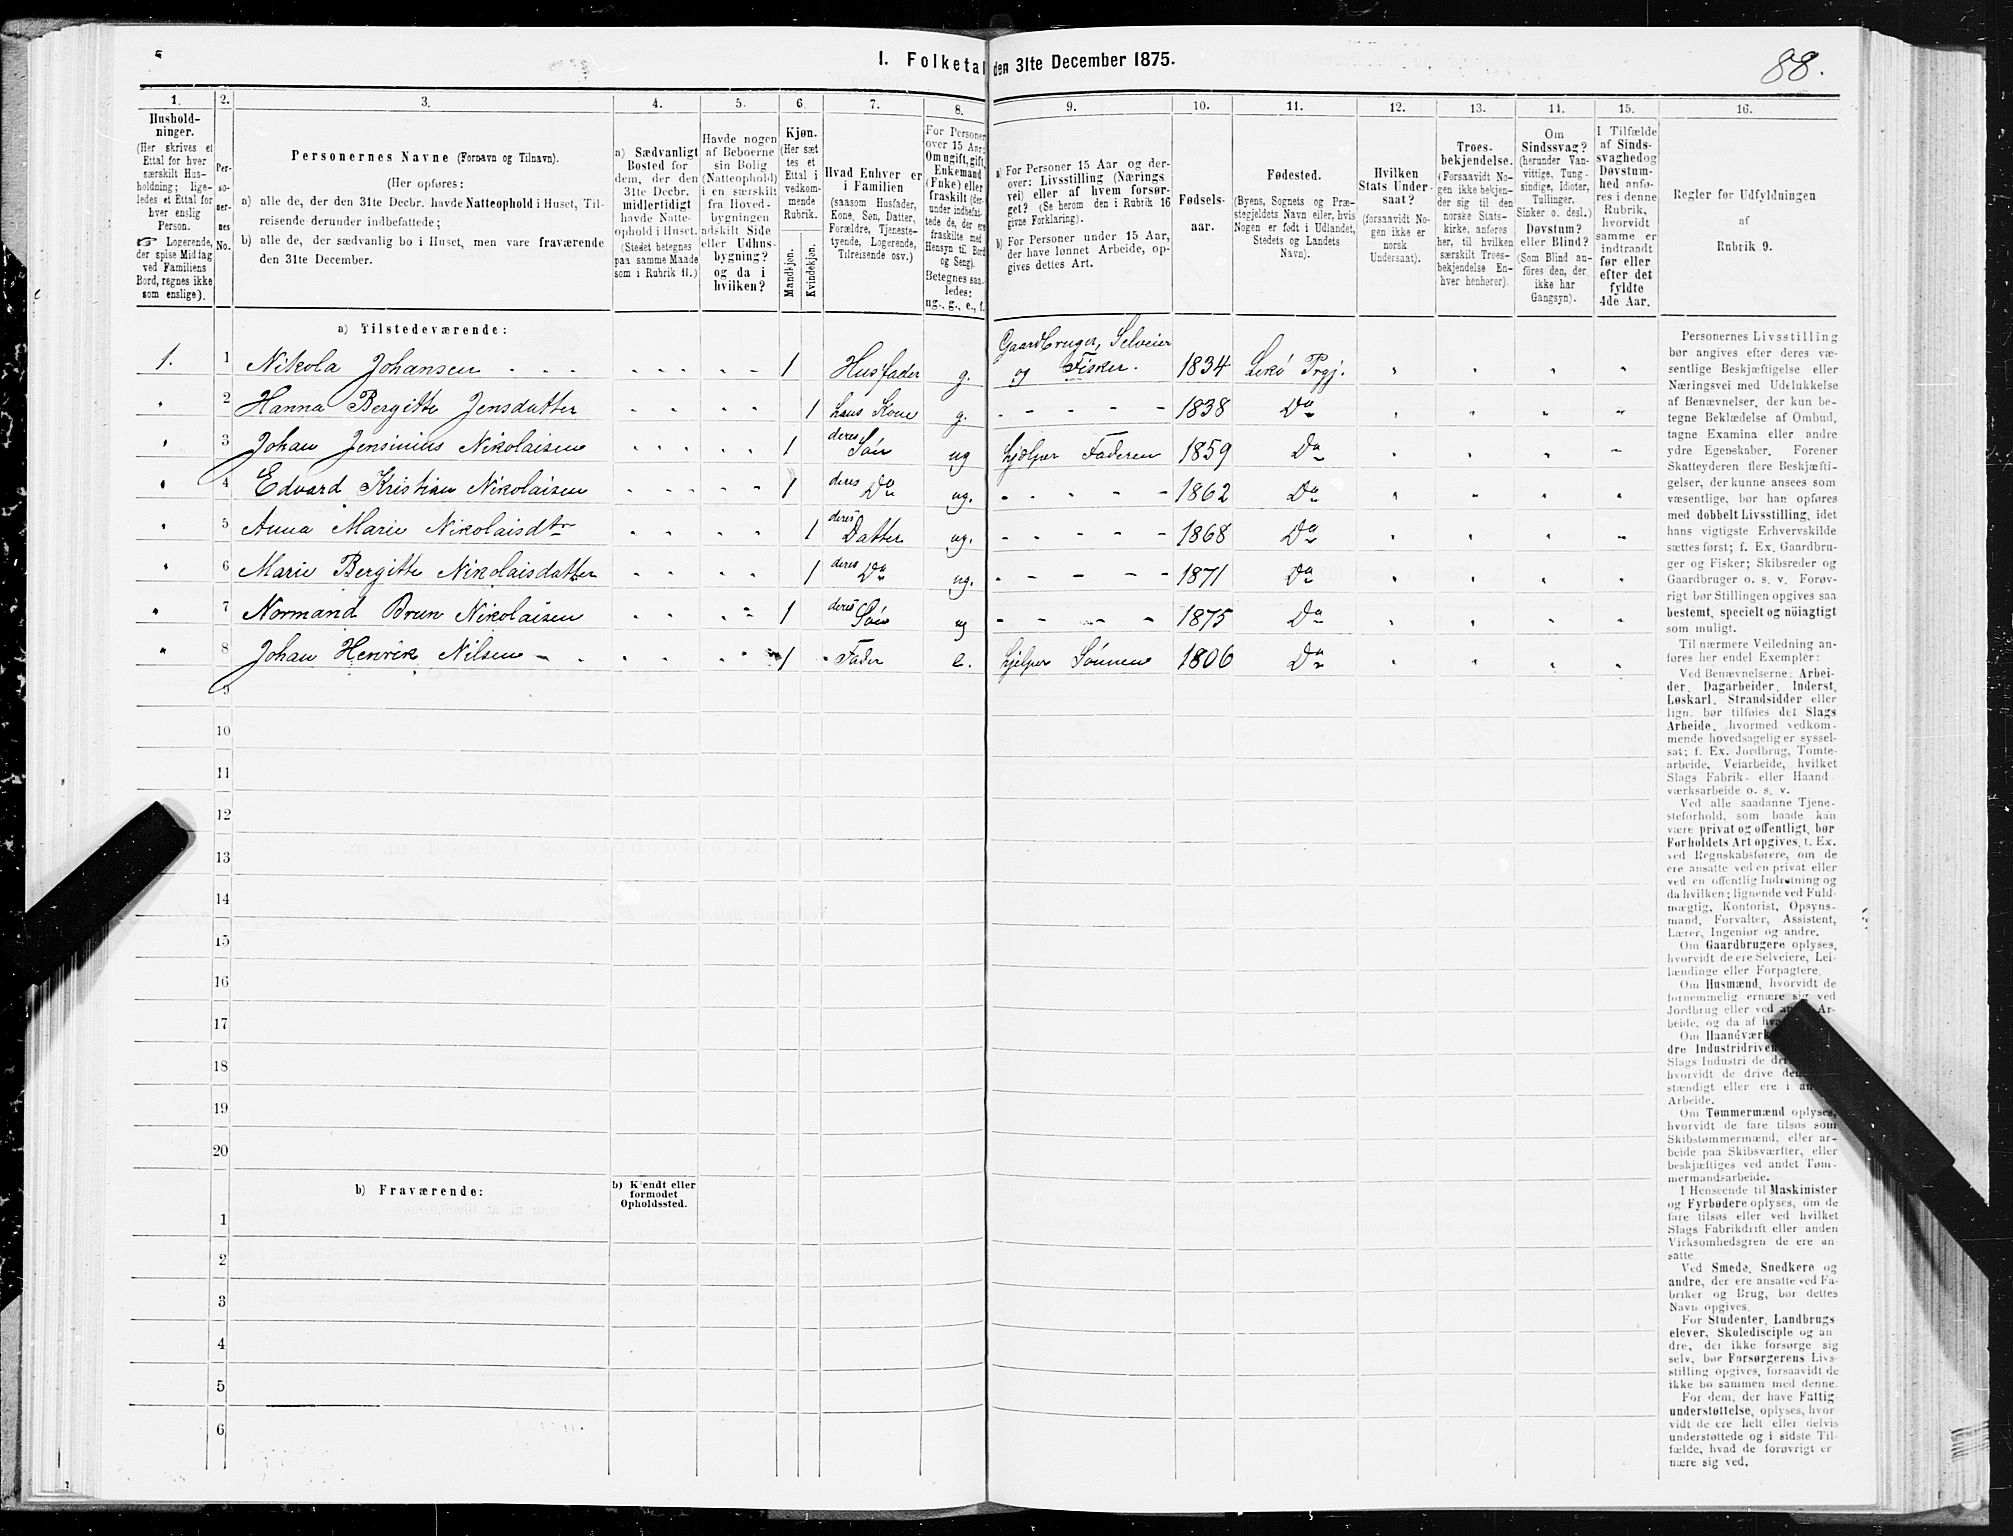 1. Folketal den 31te December 1875.
88.
1.
2.
3.
4.
5.
6
7.
8.
9.
10.
11.
12.
13.
14.
15.
16.
Hushold-
ninger.
(Her skrives et
Ettal for hver
særskilt Hus-
holdning; lige-
ledes et Ettal for
hver enslig
Person.
☞ Logerende,
der spise Middag
ved Familiens
Bord, regnes ikke
som enslige).
Per-
so-
ner-
nes
No.
Personernes Navne (Fornavn og Tilnavn).
(Her opføres:
a) alle de, der den 31te Decbr. havde Natteophold i Huset, Til-
reisende derunder indbefattede;
b) alle de, der sædvanlig bo i Huset, men vare fraværende
den 31te December.
a) Sædvanligt
Bosted for
dem, der den
31te Decbr.
midlertidigt
havde Natte-
ophold i Huset.
(Stedet betegnes
paa samme Maade
som i Rubrik 11.)
Havde nogen
af Beboerne
sin Bolig
(Natteophold)
i en særskilt
fra Hoved-
bygningen
adskilt Side
eller Udhus-
bygning?
og da i
hvilken?
Kjøn.
(Her sæt
tes et
Ettal i
vedkom-
mende
Rubrik.
Mandkjøn.
Kvindekjøn.
Hvad Enhver er
i Familien
(saasom Husfader,
Kone, Søn, Datter,
Forældre, Tjeneste-
tyende, Logerende,
Tilreisende osv.)
For Personer
over 15 Aar:
Om ugift, gift,
Enkemand
(Enke) eller
fraskilt (der-
under indbefat-
tede de, der ere
fraskilte med
Hensyn til Bord
og Seng).
Betegnes saa-
ledes:
ug., g., e., f.
a) For Personer 15 Aar og der-
over: Livsstilling (Nærings
vei) eller af hvem forsør-
get? (Se herom den i Rubrik 16
givne Forklaring).
b) For Personer under 15 Aar,
der have lønnet Arbeide, op-
gives dettes Art.
Fødsels-
aar.
Fødested.
(Byens, Sognets og Præ-
stegjeldets Navn eller, hvis
Nogen er født i Udlandet,
Stedets og Landets
Navn).
Hvilken
Stats Under-
saat?
(forsaavidt No-
gen ikke er
norsk
Undersaat).
Troes-
bekjendelse.
(Forsaavidt No-
gen ikke bekjen-
der sig til den
norske Stats-
kirke, anføres
her, til hvilken
særskilt Troes-
bekjendelse En-
hver henhører).
Om
Sindssvag?
(herunder Van-
vittige, Tung-
sindige, Idioter,
Tullinger,
Sinker o. desl.)
Døvstum?
eller Blind?
(Som Blind an-
føres den, der
ikke har
Gangsyn).
I Tilfælde
af Sinds-
svaghed og
Døvstum-
hed anfø-
res i denne
Rubrik,
hvorvidt
samme er
indtraadt
før eller
efter det
fyldte
4de Aar.
Regler for Udfyldningen
af
Rubrik 9.
a) Tilstedeværende:
1. 1 Nikola Johansen 1 Husfader g. Gaardbruger, Selveier og Fisker. 1834 Lekø Prgj.
" 2 Hanna Bergitte Jensdatter 1 hans Kone g. 1838 Do
" 3 Johan Jensinius Nikolaisen 1 deres Søn ug hjælper Faderen 1859 Do
" 4 Edvard Kristian Nikolaisen 1 deres Do ug. 1862 Do
" 5 Anna Marie Nikolaisdtr 1 deres Datter ug. 1868 Do
" 6 Marie Bergitte Nikolaisdatter 1 deres Do ug. 1871 Do
" 7 Normand Brun Nikolaisen 1 deres Søn ug 1875 Do
" 8 Johan Henrik Nilsen 1 Fader e. hjelper Sønnen 1806 Do
9
10
11
12
13
14
15
16
17
18
19
20
b) Fraværende:
b) Kjendt eller
formodet
Opholdssted.
1
2
3
4
5
6
Personernes Livsstilling
bør angives efter deres væ-
sentlige Beskjæftigelse eller
Næringsvei med Udelukkelse
af Benævnelser, der kun be-
tegne Beklædelse af Ombud,
tagne Examina eller andre
ydre Egenskaber. Forener
Skatteyderen flere Beskjæfti-
gelser, der kunne ansees som
væsentlige, bør han opføres
med dobbelt Livsstilling, idet
hans vigtigste Erhvervskilde
sættes først; f. Ex. Gaardbru-
ger og Fisker; Skibsreder og
Gaardbruger o. s. v. Forøv-
rigt bør Stillingen opgives saa
bestemt, specielt og nöiagtigt
som muligt.
Til nærmere Veiledning an-
føres her endel Exempler:
Ved Benævnelserne: Arbei-
der, Dagarbeider, Inderst,
Løskarl, Strandsidder eller
lign. bør tilføies det Slags
Arbeide, hvormed vedkom-
mende hovedsagelig er syssel-
sat; f. Ex. Jordbrug, Tomte-
arbeide, Veiarbeide, hvilket
Slags Fabrik- eller Haand-
værksarbeide o. s. v.
Ved alle saadanne Tjene-
steforhold, som baade kan
være privat og offentligt, bør
Forholdets Art opgives, f. Ex.
ved Regnskabsførere, om de
ere ansatte ved en privat eller
ved en offentlig Indretning og
da hvilken; lignende ved Fuld-
mægtig, Kontorist, Opsyns-
mand, Forvalter, Assistent,
Lærer, Ingeniør og andre.
Om Gaardbrugere oplyses,
hvorvidt de ere Selveiere, Lei-
lændinge eller Forpagtere.
Om Husmænd, hvorvidt de
fornemmelig ernære sig ved
Jordbrug eller ved Ar-
beide, og da af
Om Haandværk
dre Industridriven
Slags Industri de
hvorvidt de drive
stændigt eller ere i
Arbeide.
Om Tømmermænd oplyses,
hvorvidt de fare tilsøs som
Skibstømmermænd, eller ar-
beide paa Skibsværfter, eller
beskjæftiges ved andet Tøm-
mermandsarbeide.
I Henseende til Maskinister
og Fyrbødere oplyses, om de
fare tilsøs eller ved hvilket
Slags Fabrikdrift eller anden
Virksomhedsgren de ere an-
satte.
Ved Smede, Snedkere og
andre, der ere ansatte ved Fa-
briker og Brug, bør dettes
Navn opgives.
For Studenter, Landbrugs
elever, Skoledisciple og an-
dre, der ikke forsørge sig
selv, bør Forsørgerens Livs-
stilling opgives, forsaavidt de
ikke bo sammen med denne.
For dem, der have Fattig-
understøttelse, oplyses, hvor-
vidt de ere helt eller delvis
understøttede og i sidste Til-
fælde, hvad de forøvrigt er
nære sig ved.